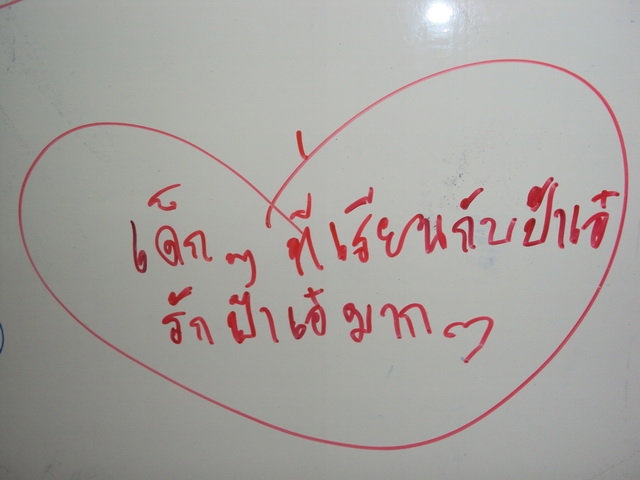 เด็ก ๆ ที่เรียนกับป้าเอ๋
รักป้าเอ๋มาก ๆ